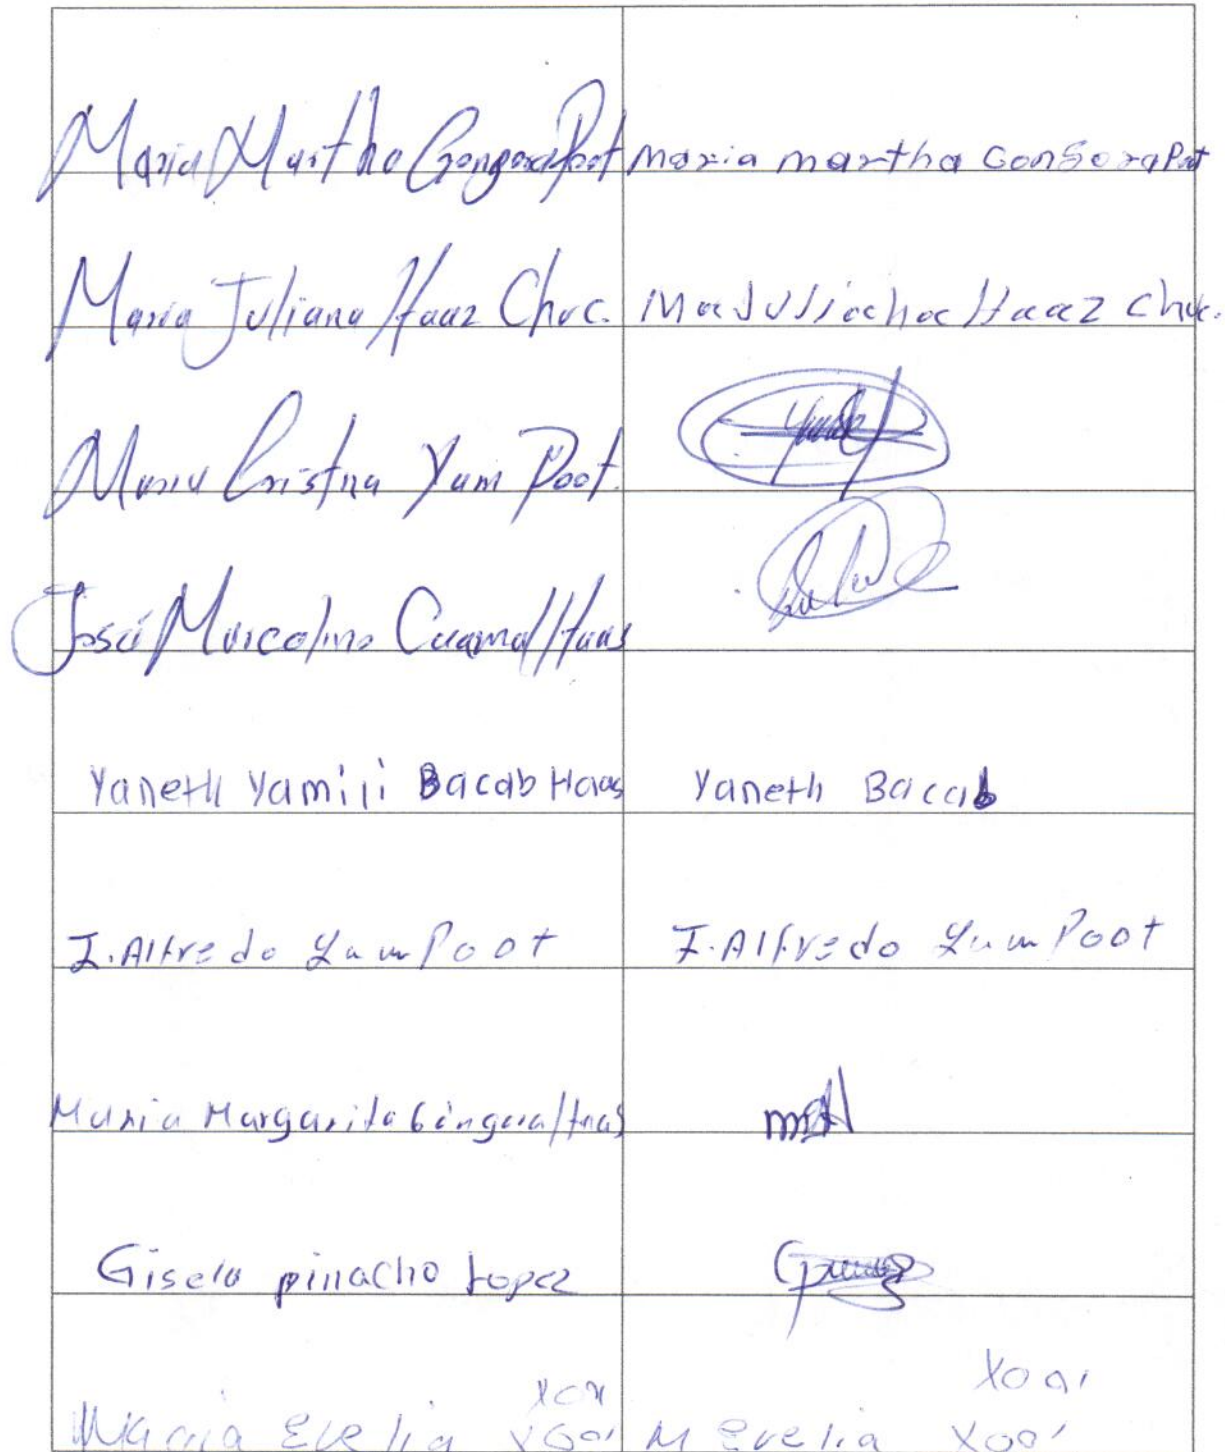 Maria Martha Gongora Poot maria martha Gongora Poot
Maria Juliana Haaz Chuc. Ma Juliana Haaz Chuc.
Maria Cristna Yam Poot.
José Marcolino Caamal Haas
Yaneth Yamili Bacab Haas Yaneth Bacab
J. Alfredo Yam Poot J. Alfredo Yam Poot
Maria Margarita Góngora Haas
Gisela pinacho Lopez
Maria Evelia M Evelia